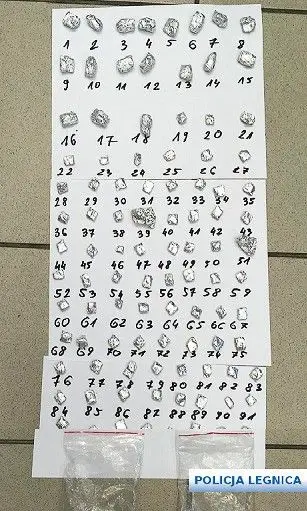 1 2 3 4 5 6 7 8
9 10 11 12 13 14 15
16 17 18 19 20 21
22 23 24 25 26 27
28 29 30 31 32 33 34 35
36 37 38 39 40 41 42 43
44 45 46 47 48 49 50 51
52 53 54 55 56 57 58 59
60 61 62 63 64 65 66 67
68 69 70 71 72 73 74 75
76 77 78 79 80 81 82 83
84 85 86 87 88 89 90 91
POLICJA LEGNICA